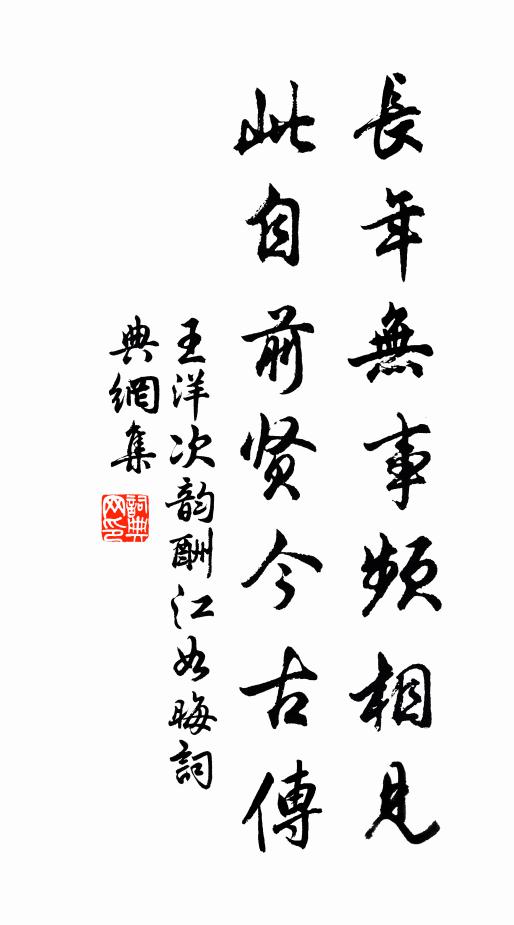 長年無事頻相見
此自前賢今古傳
王洋次韵酬江如晦詞
典網集
詞典網印